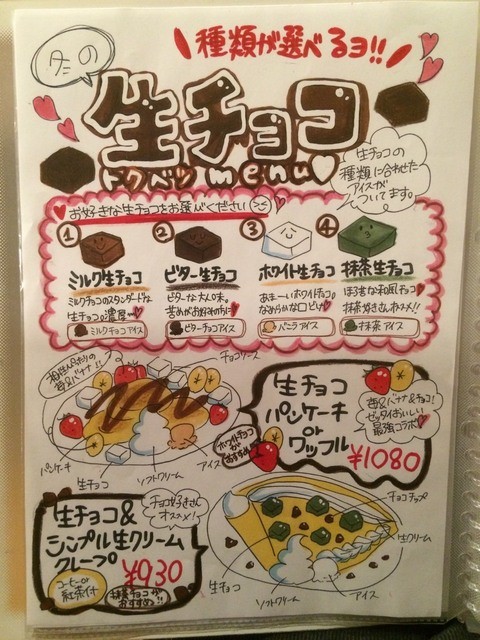 種類が選べるヨ!!
冬の
生チョコ
トクベツmenu
生チョコの
種類に合わせた
アイスが
ついてます。
お好きな生チョコをお選びください
① ② ③ ④
ミルク生チョコ
ミルクチョコのスタンダードな
生チョコ。濃厚
ミルクチョコアイス
ビター生チョコ
ビターな大人味。
苦めがお好みの方に
ビターチョコアイス
ホワイト生チョコ
あまーいホワイトチョコ。
なめらかな口どけ
バニラアイス
抹茶生チョコ
ほろ苦な和風チョコ
抹茶好きさんおススメ!!
抹茶アイス
相性んバッチリの
苺&バナナ!!
チョコソース
パンケーキ
生チョコ
ソフトクリーム
アイス
ホワイトチョコ
が
おすすめ!
生チョコ
パンケーキ
or
ワッフル
¥1080
苺&バナナ&チョコ!
ゼッタイおいしい
最強コラボ
生チョコ&
シンプル生クリーム
クレープ
¥930
コーヒーor
紅茶付
抹茶チョコが
おすすめ!!
チョコ好きさん
オススメ!
チョコチップ
生クリーム
生チョコ
ソフトクリーム
アイス